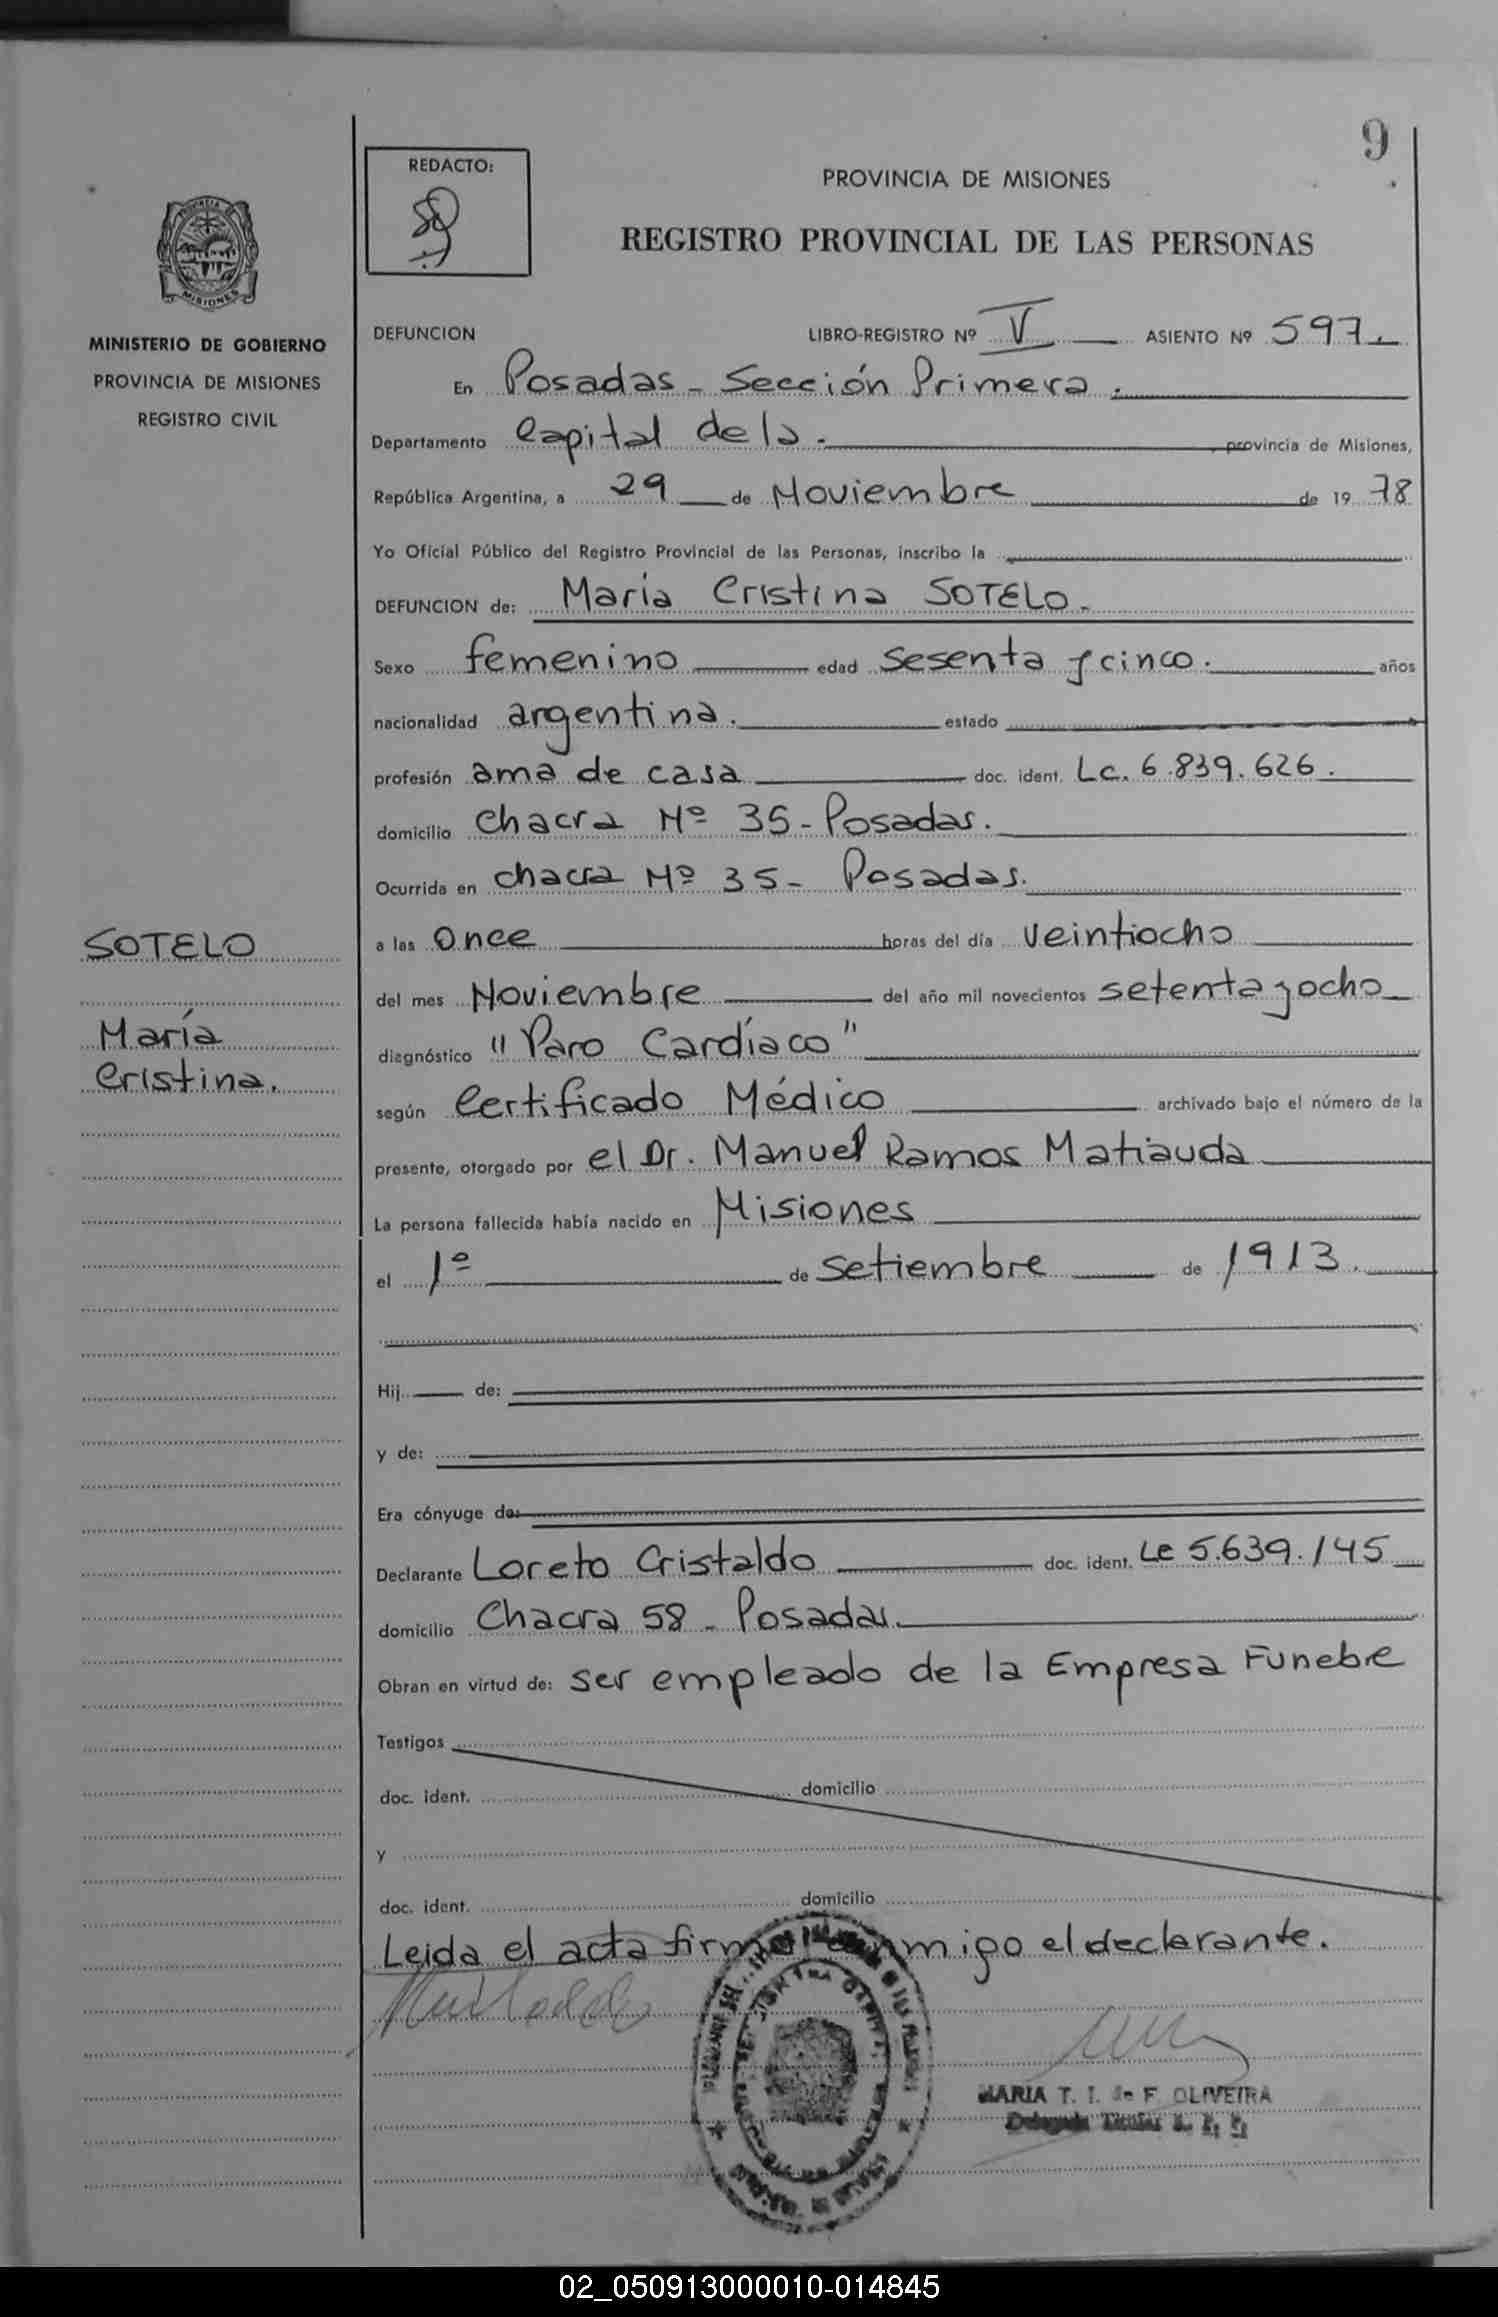 9
REDACTO:
PROVINCIA DE MISIONES
REGISTRO PROVINCIAL DE LAS PERSONAS
MISIONES
MINISTERIO DE GOBIERNO
PROVINCIA DE MISIONES
REGISTRO CIVIL
DEFUNCION LIBRO-REGISTRO Nº V ASIENTO Nº 597.
En Posadas - Sección Primera.
Departamento Capital de la. provincia de Misiones,
República Argentina, a 29 de Noviembre de 1978
Yo Oficial Público del Registro Provincial de las Personas, inscribo la
DEFUNCION de: María Cristina SOTELO.
Sexo femenino edad sesenta y cinco. años
nacionalidad argentina. estado
profesión ama de casa doc. ident. Lc. 6.839.626.
domicilio chacra Nº 35 - Posadas.
Ocurrida en chacra Nº 35 - Posadas.
SOTELO
María
Cristina.
a las Once horas del día veintiocho
del mes Noviembre del año mil novecientos setenta y ocho
diagnóstico "Paro Cardíaco"
según Certificado Médico archivado bajo el número de la
presente, otorgado por el Dr. Manuel Ramos Matiauda
La persona fallecida había nacido en Misiones
el 1º de setiembre de 1913.
Hij de:
y de:
Era cónyuge de:
Declarante Loreto Cristaldo doc. ident. Le 5.639.145
domicilio Chacra 58 - Posadas.
Obran en virtud de: ser empleado de la Empresa Funebre
Testigos
doc. ident. domicilio
y
doc. ident. domicilio
Leida el acta firma conmigo el declarante.
MARIA T. I. de F. OLIVEIRA
02_050913000010-014845